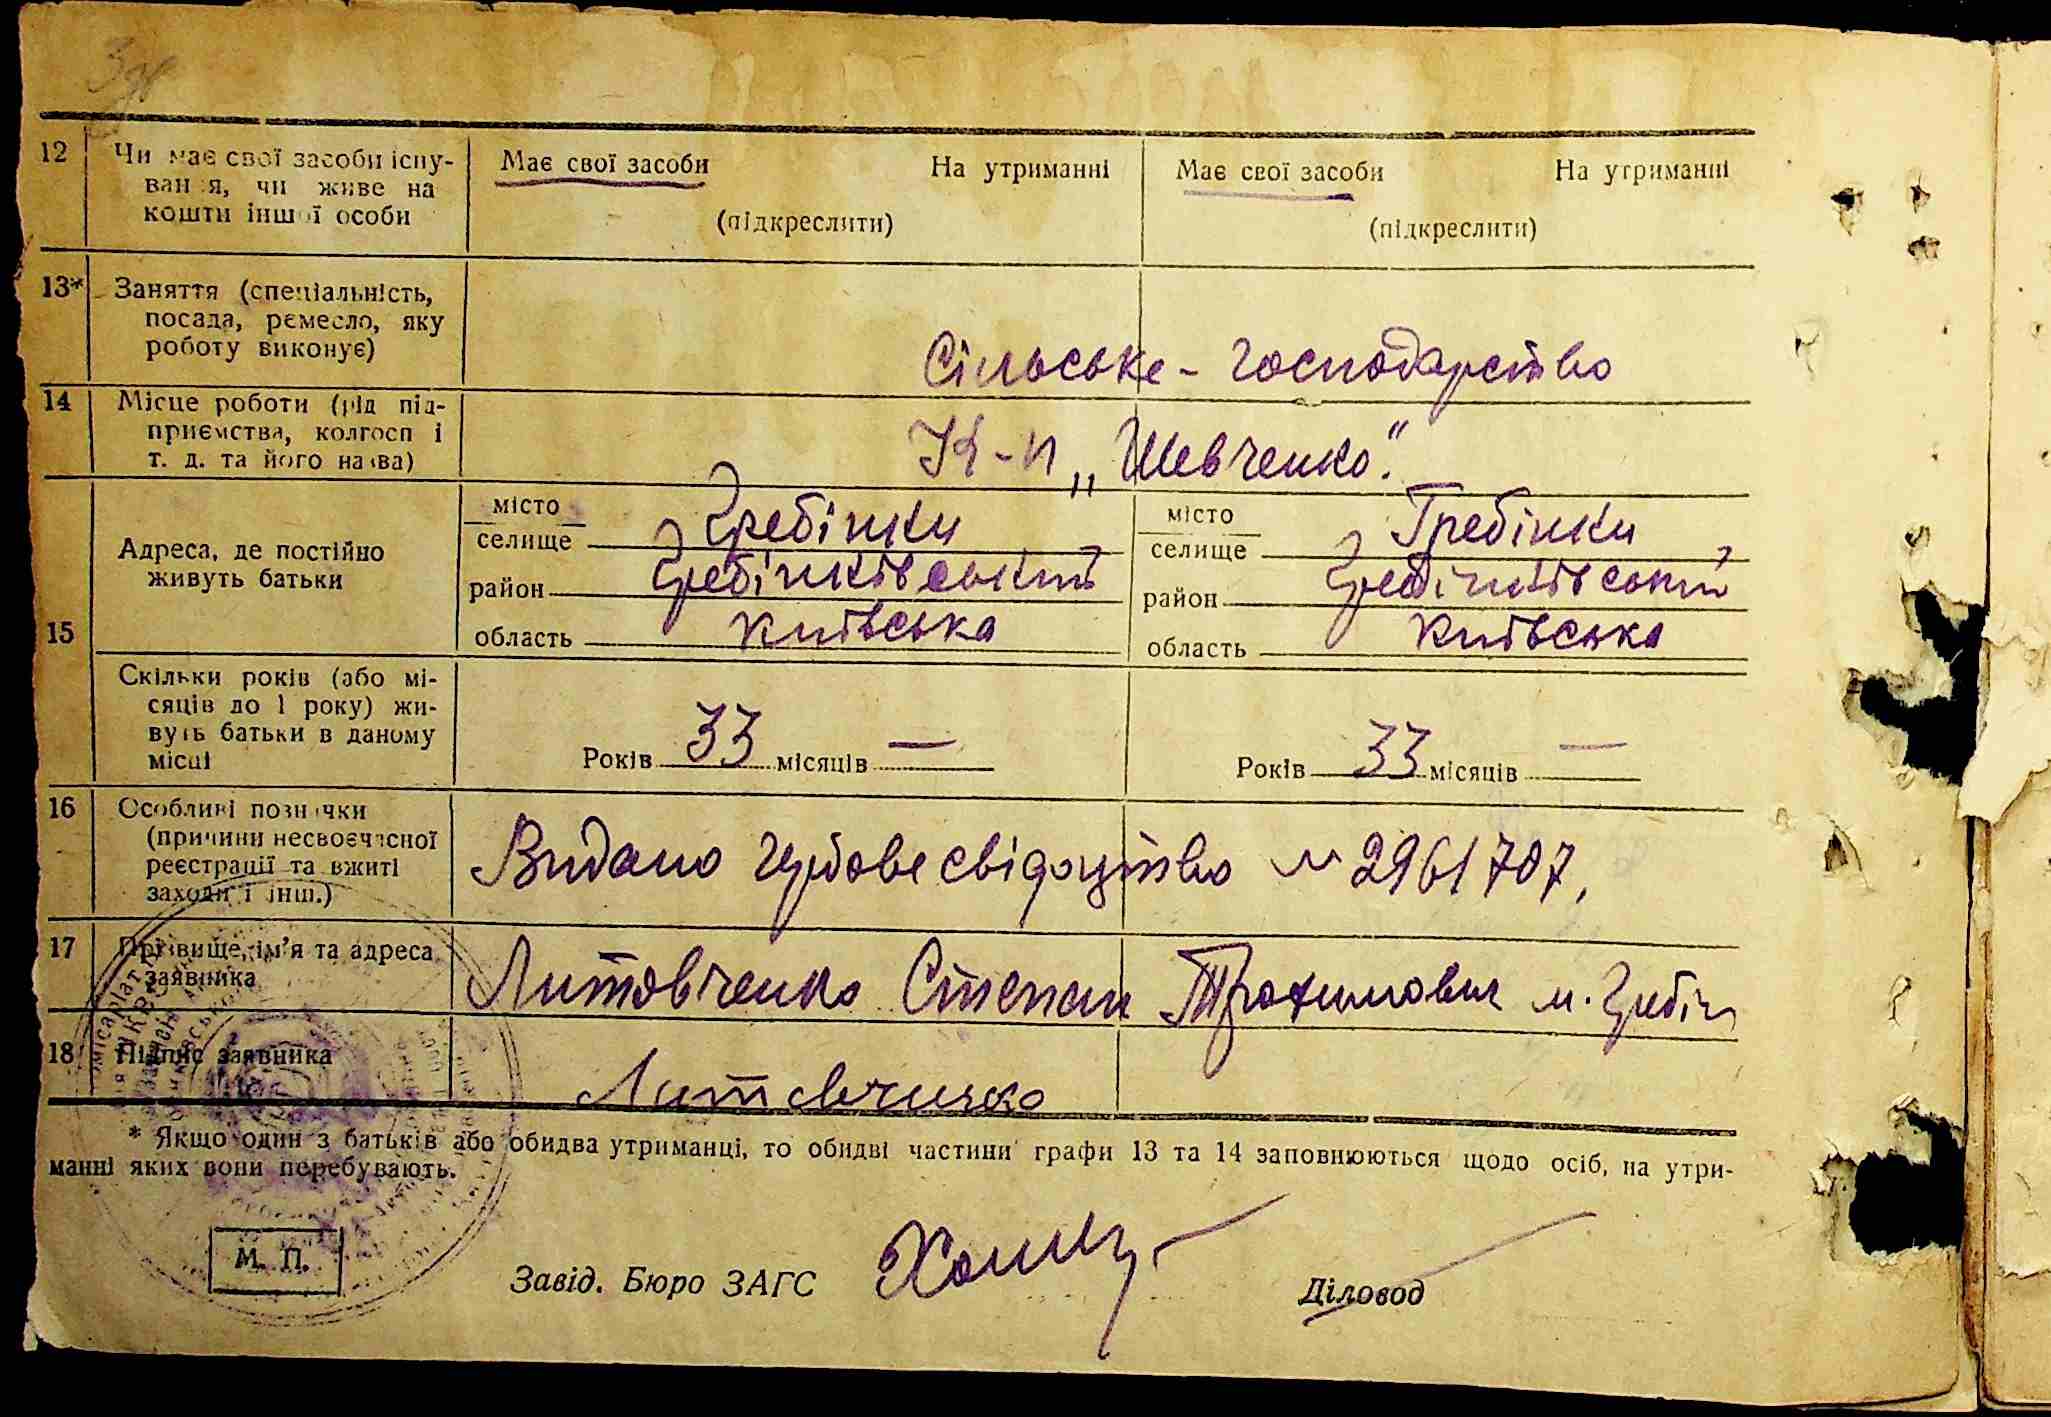 12 Чи має свої засоби існу- Має свої засоби На утриманні Має свої засоби На утриманні
вання, чи живе на
кошти іншої особи (підкреслити) (підкреслити)
13* Заняття (спеціальність,
посада, ремесло, яку
роботу виконує) Сільське-господарство
14 Місце роботи (рід під-
приємства, колгосп і К-п „Шевченко".
т. д. та його назва)
15 Адреса, де постійно
живуть батьки
місто
селище Гребінки
район Гребінківський
область Київська
місто
селище Гребінки
район Гребінківський
область Київська
Скільки років (або мі-
сяців до 1 року) жи-
вуть батьки в даному
місці
Років 33 місяців — Років 33 місяців —
16 Особливі позначки
(причини несвоєчасної
реєстрації та вжиті
заходи і інш.)
Видано гербове свідоцтво № 2961707,
17 Прізвище, ім'я та адреса
заявника
Литовченко Степан Трохимович м. Гребін
18 Підпис заявника Литовченко
* Якщо один з батьків або обидва утриманці, то обидві частини графи 13 та 14 заповнюються щодо осіб, на утри-
манні яких вони перебувають.
М. П.
Завід. Бюро ЗАГС Діловод